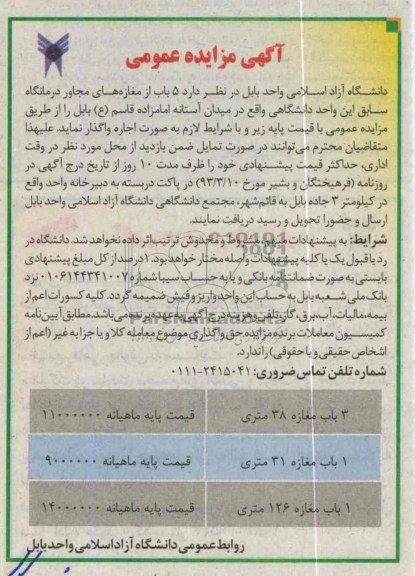 آگهی مزایده عمومی
دانشگاه آزاد اسلامی واحد بابل در نظر دارد ۵ باب از مغازه‌های مجاور درمانگاه
سابق این واحد دانشگاهی واقع در میدان آستانه امامزاده قاسم (ع) بابل را از طریق
مزایده عمومی با قیمت پایه زیر و با شرایط لازم به صورت اجاره واگذار نماید. علیهذا
متقاضیان محترم می‌توانند در صورت تمایل ضمن بازدید از محل مورد نظر در وقت
اداری، حداکثر قیمت پیشنهادی خود را ظرف مدت ۱۰ روز از تاریخ درج آگهی در
روزنامه (فرهیختگان و بشیر مورخ ۹۳/۳/۱۰) در پاکت دربسته به دبیرخانه واحد واقع
در کیلومتر ۳ جاده بابل به قائم‌شهر، مجتمع دانشگاهی دانشگاه آزاد اسلامی واحد بابل
ارسال و حضورا تحویل و رسید دریافت نمایند.
شرایط: به پیشنهادات مبهم، مشروط و مخدوش ترتیب اثر داده نخواهد شد. دانشگاه در
رد یا قبول یک یا کلیه پیشنهادات واصله مختار خواهد بود. ۱۰درصد از کل مبلغ پیشنهادی
بایستی به صورت ضمانتنامه بانکی و یا به حساب سیبا شماره ۰۱۰۶۱۴۴۳۴۱۰۰۷ نزد
بانک ملی شعبه بابل به حساب این واحد واریز و فیش ضمیمه گردد. کلیه کسورات اعم از
بیمه، مالیات، آب، برق، گاز، تلفن و هزینه درج آگهی به عهده برنده می باشد. مطابق آیین‌نامه
کمیسیون معاملات برنده مزایده حق واگذاری موضوع معامله کلا و یا جزا به غیر (اعم از
اشخاص حقیقی و یا حقوقی) را ندارد.
شماره تلفن تماس ضروری: ۲۴۱۵۰۴۱-۰۱۱۱
۳ باب مغازه ۳۸ متری قیمت پایه ماهیانه ۱۱۰۰۰۰۰۰
۱ باب مغازه ۳۱ متری قیمت پایه ماهیانه ۹۰۰۰۰۰۰
۱ باب مغازه ۱۲۶ متری قیمت پایه ماهیانه ۱۴۰۰۰۰۰۰
روابط عمومی دانشگاه آزاد اسلامی واحد بابل